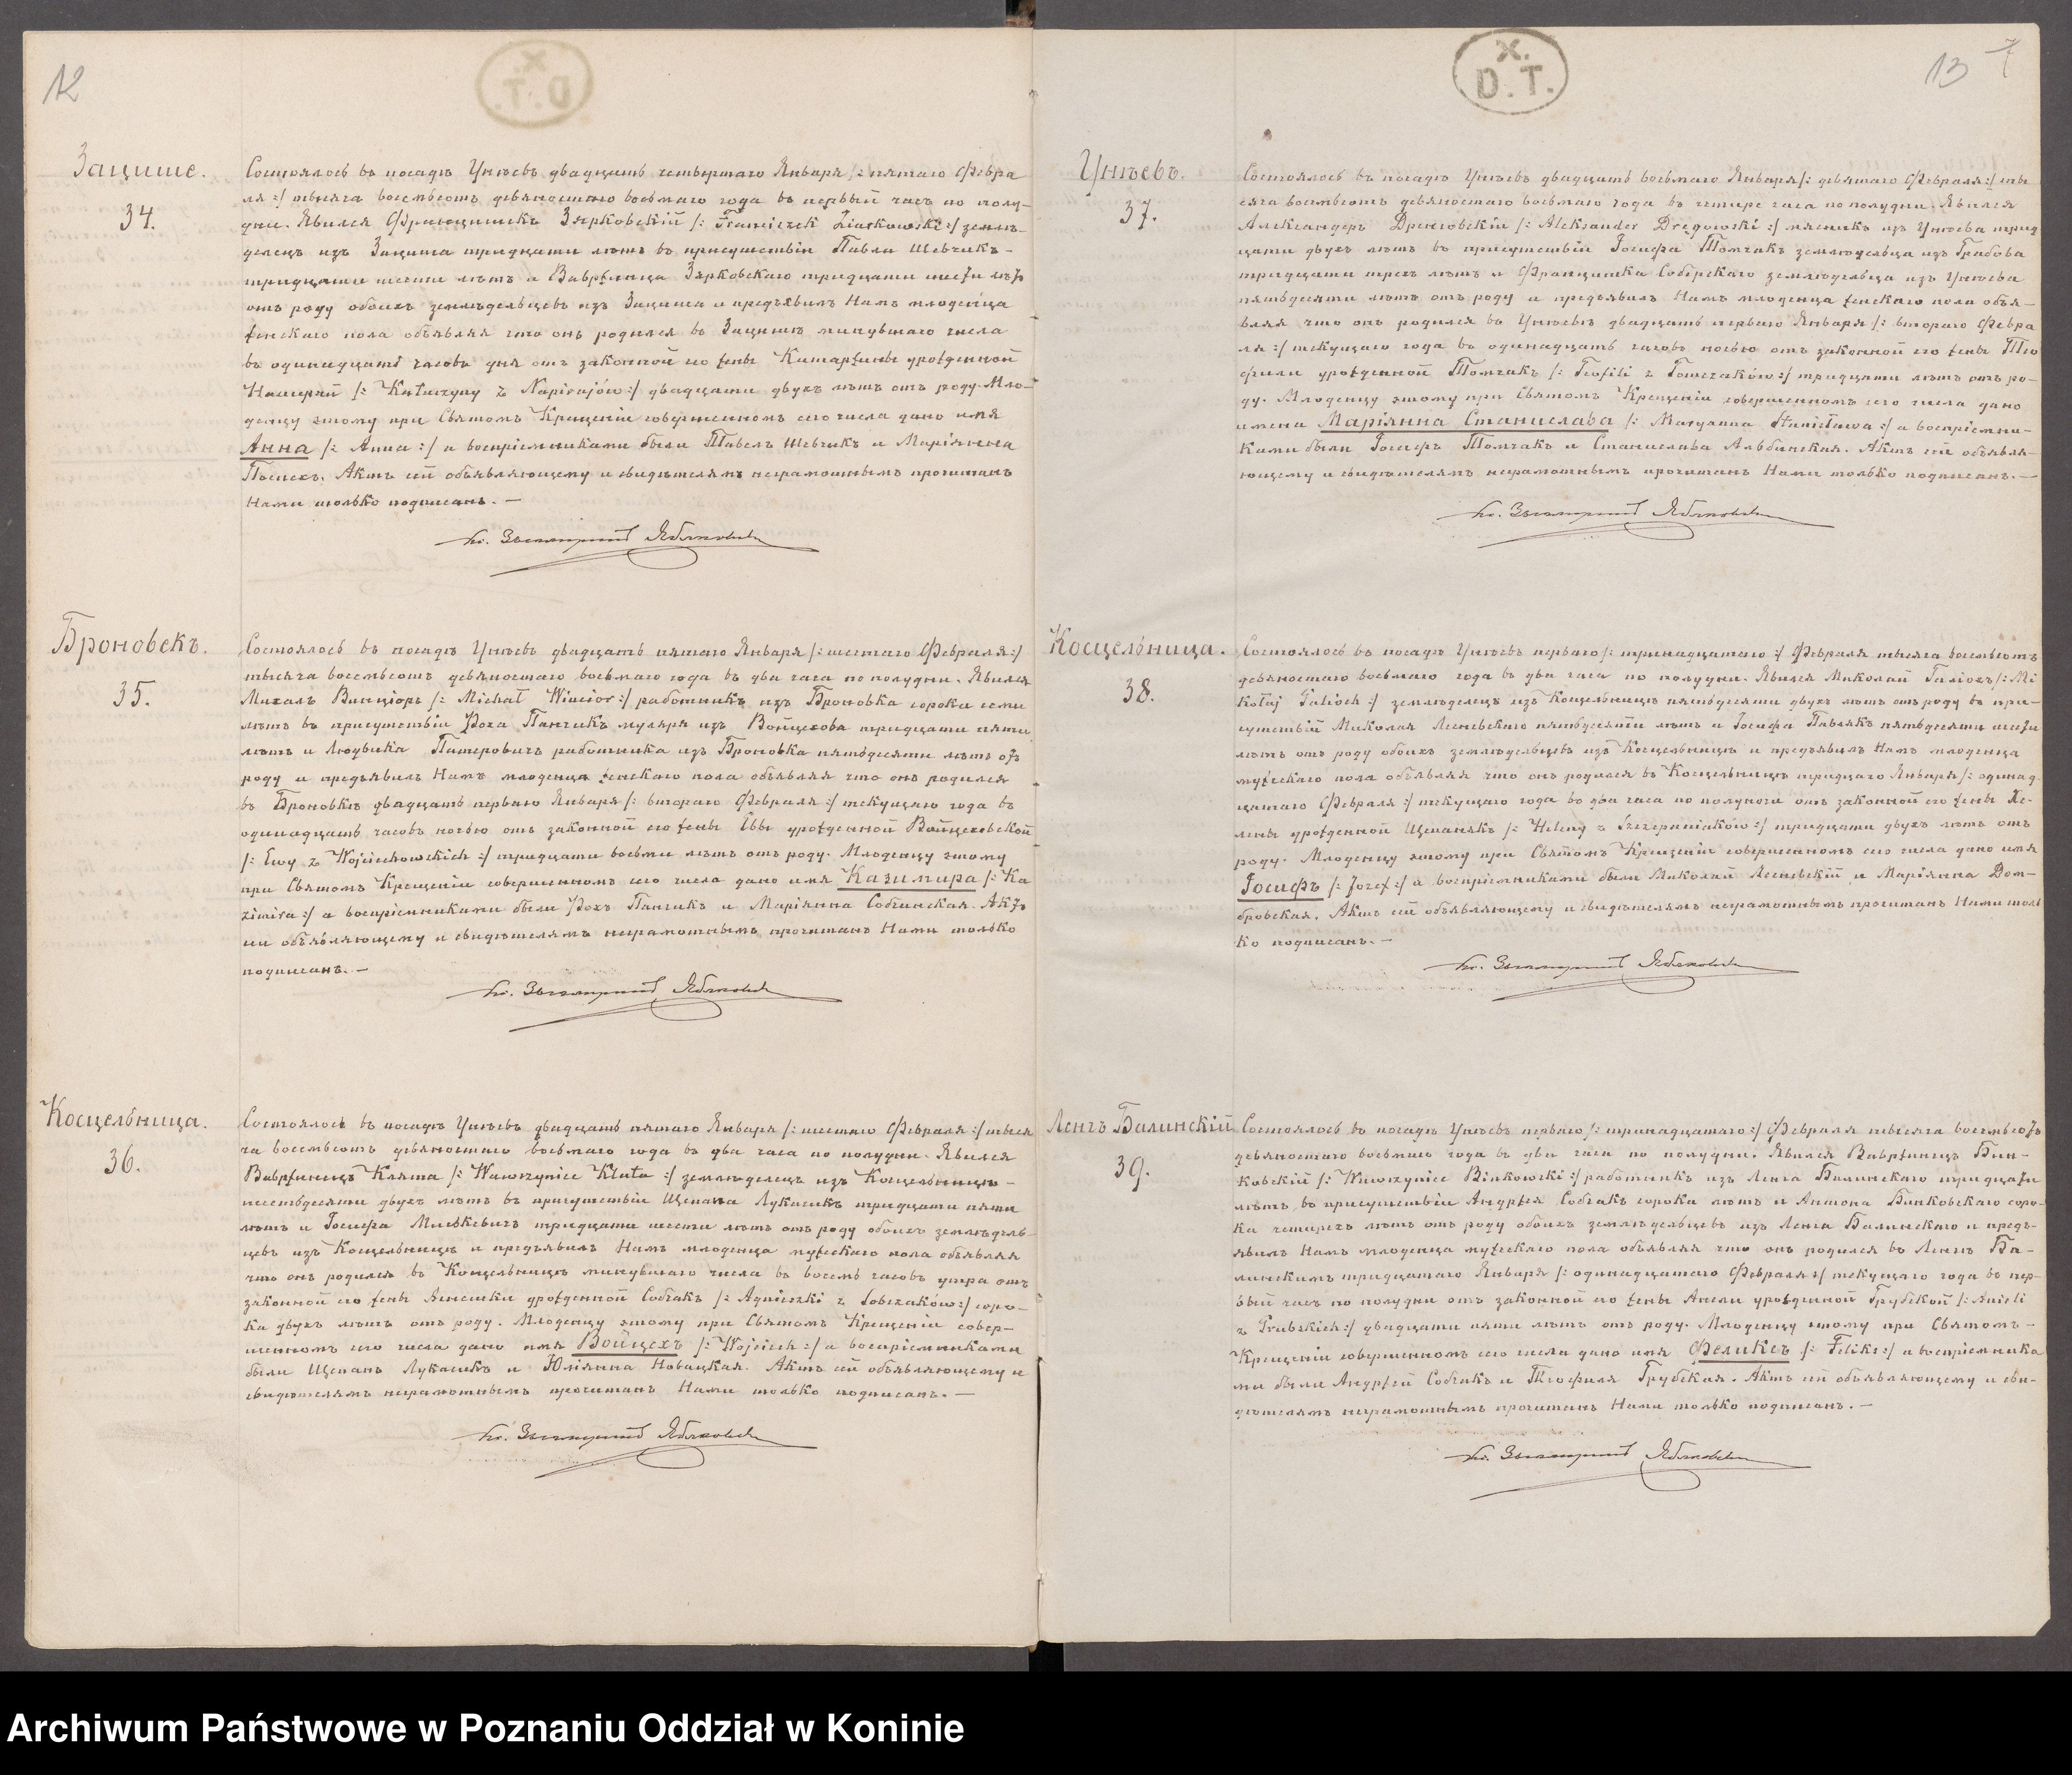 12
X.
D.T.
Зацише.
34.
Состоялось въ посадѣ Унѣевъ двадцать четвертаго Января /: пятаго Февра
ля :/ тысяча восемьсотъ девяностаго восьмаго года въ первый часъ по полу-
дни. Явился Францишекъ Зярковскій /: Franciszek Ziarkowski :/ землѣ-
делецъ изъ Зациша тридцати лѣтъ въ присутствіи Павла Шевчикъ -
тридцати шести лѣтъ и Вавржинца Зярковскаго тридцати шести лѣтъ
отъ роду обоихъ земледѣльцевъ изъ Зациша и предъявилъ Намъ младенца
женскаго пола объявляя что онъ родился въ Зацишѣ минувшаго числа
въ одинадцать часовъ дня отъ законной его жены Катаржины урожденной
/: Katarzyny z Napirajów :/ двадцати двухъ лѣтъ отъ роду. Мла-
денцу этому при Святомъ Крещеніи совершенномъ сего числа дано имя
Анна /: Anna :/ а воспріемниками были Павелъ Шевчикъ и Маріянна
Актъ сей объявляющему и свидѣтелямъ неграмотнымъ прочитанъ
Нами только подписанъ. -
Броновекъ.
35.
Состоялось въ посадѣ Унѣевъ двадцать пятаго Января /: шестаго Февраля :/
тысяча восемьсотъ девяностаго восьмаго года въ два часа по полудни. Явился
Михалъ Винціоръ /: Michał Wincior :/ работникъ изъ Броновка сорока семи
лѣтъ въ присутствіи Роха Панчикъ муляря изъ Войцехова тридцати пяти
лѣтъ и Людвика Патеровичъ работника изъ Броновка пятьдесяти лѣтъ отъ
роду и предъявилъ Намъ младенца женскаго пола объявляя что онъ родился
въ Броновкѣ двадцать перваго Января /: втораго Февраля :/ текущаго года въ
одинадцать часовъ ночью отъ законной его жены Евы урожденной Войцеховской
/: Ewy z Wojciechowskich :/ тридцати восьми лѣтъ отъ роду. Младенцу этому
при Святомъ Крещеніи совершенномъ сего числа дано имя Казимира /: Ka
zimira :/ а воспріемниками были Рохъ Панчикъ и Маріянна Собчинская. Актъ
сей объявляющему и свидѣтелямъ неграмотнымъ прочитанъ Нами только
подписанъ. -
Косцельница.
36.
Состоялось въ посадѣ Унѣевъ двадцать пятаго Января /: шестаго Февраля :/ тыся
ча восемьсотъ девяностаго восьмаго года въ два часа по полудни. Явился
Вавржинецъ Клята /: Wawrzyniec Klata :/ земледѣлецъ изъ Косцельницы -
шестьдесяти двухъ лѣтъ въ присутствіи Щепана Лукасикъ тридцати пяти
лѣтъ и Іосифа Миськевичъ тридцати шести лѣтъ отъ роду обоихъ земледѣль-
цевъ изъ Косцельницы и предъявилъ Намъ младенца мужескаго пола объявляя
что онъ родился въ Косцельницѣ минувшаго числа въ восемь часовъ утра отъ
законной его жены Агнешки урожденной Собчакъ /: Agnieszki z Sobczaków :/ соро-
ка двухъ лѣтъ отъ роду. Младенцу этому при Святомъ Крещеніи совер-
шенномъ сего числа дано имя Войцехъ /: Wojciech :/ а воспріемниками
были Щепанъ Лукасикъ и Юліянна Новацкая. Актъ сей объявляющему и
свидѣтелямъ неграмотнымъ прочитанъ Нами только подписанъ. -
X.
D.T.
13
7
Унѣевъ.
37.
Состоялось въ посадѣ Унѣевъ двадцать восьмаго Января /: девятаго Февраля :/ ты
сяча восемьсотъ девяностаго восьмаго года въ четыре часа по полудни. Явился
Александеръ Дренговскій /: Aleksander Dręgowski :/ мясникъ изъ Унѣева трид
цати двухъ лѣтъ въ присутствіи Іосифа Томчакъ земледѣльца изъ Грабова
тридцати трехъ лѣтъ и Францишка Собѣрскаго земледѣльца изъ Унѣева
пятьдесяти лѣтъ отъ роду и предъявилъ Намъ младенца женскаго пола объя-
вляя что онъ родился въ Унѣевѣ двадцать перваго Января /: втораго Февра
ля :/ текущаго года въ одинадцать часовъ ночью отъ законной его жены Тео
фили урожденной Томчакъ /: Teofili z Tomczaków :/ тридцати лѣтъ отъ ро-
ду. Младенцу этому при Святомъ Крещеніи совершенномъ сего числа дано
имена Маріянна Станислава /: Maryanna Stanisława :/ а воспріемни-
ками были Іосифъ Томчакъ и Станислава Альбинская. Актъ сей объявля-
ющему и свидѣтелямъ неграмотнымъ прочитанъ Нами только подписанъ. -
Косцельница.
38.
Состоялось въ посадѣ Унѣевъ перваго /: тринадцатаго :/ Февраля тысяча восемьсотъ
девяностаго восьмаго года въ два часа по полудни. Явился Миколай Галіохъ /: Mi
kołaj Galioch :/ земледѣлецъ изъ Косцельницы пятьдесяти двухъ лѣтъ отъ роду въ при-
сутствіи Миколая Лесневскаго пятьдесяти лѣтъ и Іосифа Павлякъ пятьдесяти шести
лѣтъ отъ роду обоихъ земледѣльцевъ изъ Косцельницы и предъявилъ Намъ младенца
мужескаго пола объявляя что онъ родился въ Косцельницѣ тридцаго Января /: одинад-
цатаго Февраля :/ текущаго года въ два часа по полуночи отъ законной его жены Хе-
лены урожденной Щепанякъ /: Heleny z Szczepaniaków :/ тридцати двухъ лѣтъ отъ
роду. Младенцу этому при Святомъ Крещеніи совершенномъ сего числа дано имя
Іосифъ /: Jozef :/ а воспріемниками были Миколай Лесневскій и Маріянна Дом-
бровская. Актъ сей объявляющему и свидѣтелямъ неграмотнымъ прочитанъ Нами толь
ко подписанъ. -
Ленгъ Балинскій
39.
Состоялось въ посадѣ Унѣевъ перваго /: тринадцатаго :/ Февраля тысяча восемьсотъ
девяностаго восьмаго года въ два часа по полудни. Явился Вавржинецъ Бин-
ковскій /: Wawrzyniec Binkowski :/ работникъ изъ Ленга Балинскаго тридцати
лѣтъ въ присутствіи Андржея Собчакъ сорока лѣтъ и Антона Бинковскаго соро-
ка четырехъ лѣтъ отъ роду обоихъ земледѣльцевъ изъ Ленга Балинскаго и предъ-
явилъ Намъ младенца мужескаго пола объявляя что онъ родился въ Ленгѣ Ба-
линскимъ тридцатаго Января /: одинадцатаго Февраля :/ текущаго года въ пер-
вый часъ по полудни отъ законной его жены Анели урожденной Грубской /: Anieli
z Grubskich :/ двадцати пяти лѣтъ отъ роду. Младенцу этому при Святомъ -
Крещеніи совершенномъ сего числа дано имя Феликсъ /: Feliks :/ а воспріемника
ми были Андржей Собчакъ и Теофиля Грубская. Актъ сей объявляющему и сви-
дѣтелямъ неграмотнымъ прочитанъ Нами только подписанъ. -
Archiwum Państwowe w Poznaniu Oddział w Koninie